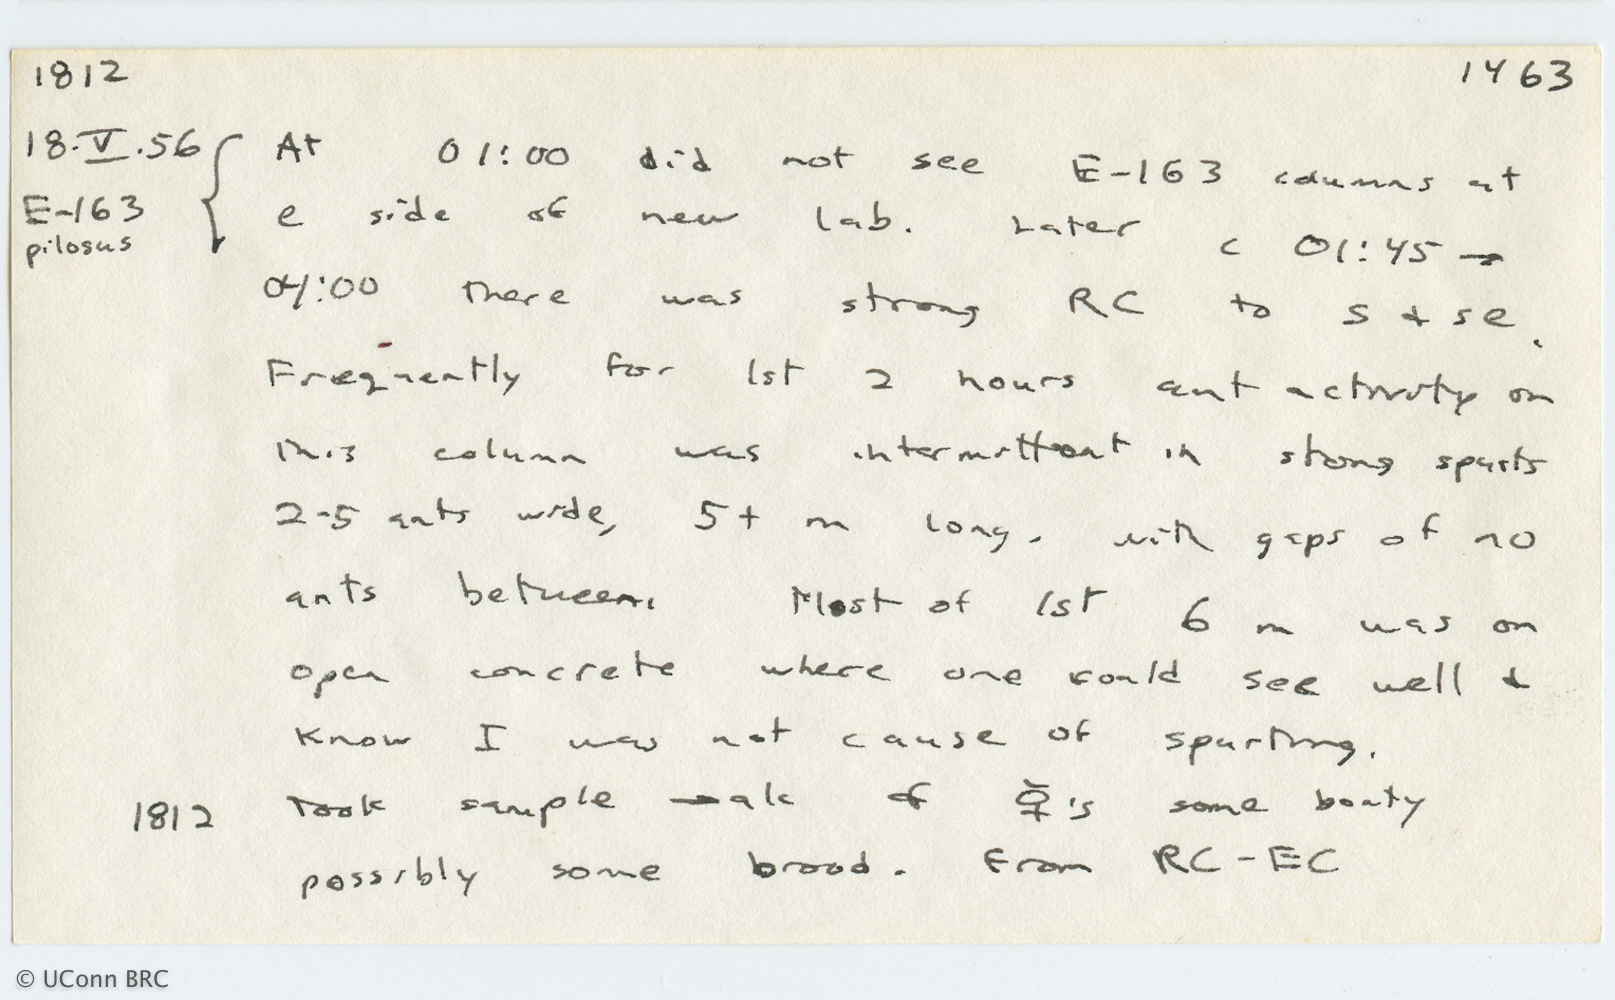 1812 1463
18.V.56 At 01:00 did not see E-163 columns at
E-163 e side of new lab. Later c 01:45 →
pilosus 04:00 there was strong RC to S & SE.
Frequently for 1st 2 hours ant activity on
this column was intermittent in strong spurts
2-5 ants wide, 5+ m long. with gaps of no
ants between. Most of 1st 6 m was on
open concrete where one could see well &
know I was not cause of spurting.
1812 Took sample → alc of ☿'s some booty
possibly some brood. From RC-EC
© UConn BRC